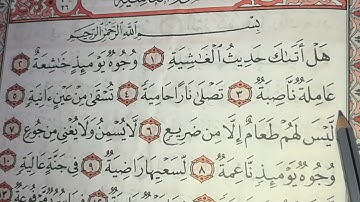 بِسْمِ اللَّهِ الرَّحْمَٰنِ الرَّحِيمِ
هَلْ أَتَىٰكَ حَدِيثُ الْغَٰشِيَةِ ١ وُجُوهٌ يَوْمَئِذٍ خَٰشِعَةٌ ٢
عَامِلَةٌ نَّاصِبَةٌ ٣ تَصْلَىٰ نَارًا حَامِيَةً ٤ تُسْقَىٰ مِنْ عَيْنٍ ءَانِيَةٍ ٥
لَّيْسَ لَهُمْ طَعَامٌ إِلَّا مِن ضَرِيعٍ ٦ لَّا يُسْمِنُ وَلَا يُغْنِي مِن جُوعٍ ٧
وُجُوهٌ يَوْمَئِذٍ نَّاعِمَةٌ ٨ لِّسَعْيِهَا رَاضِيَةٌ ٩ فِي جَنَّةٍ عَالِيَةٍ ١٠